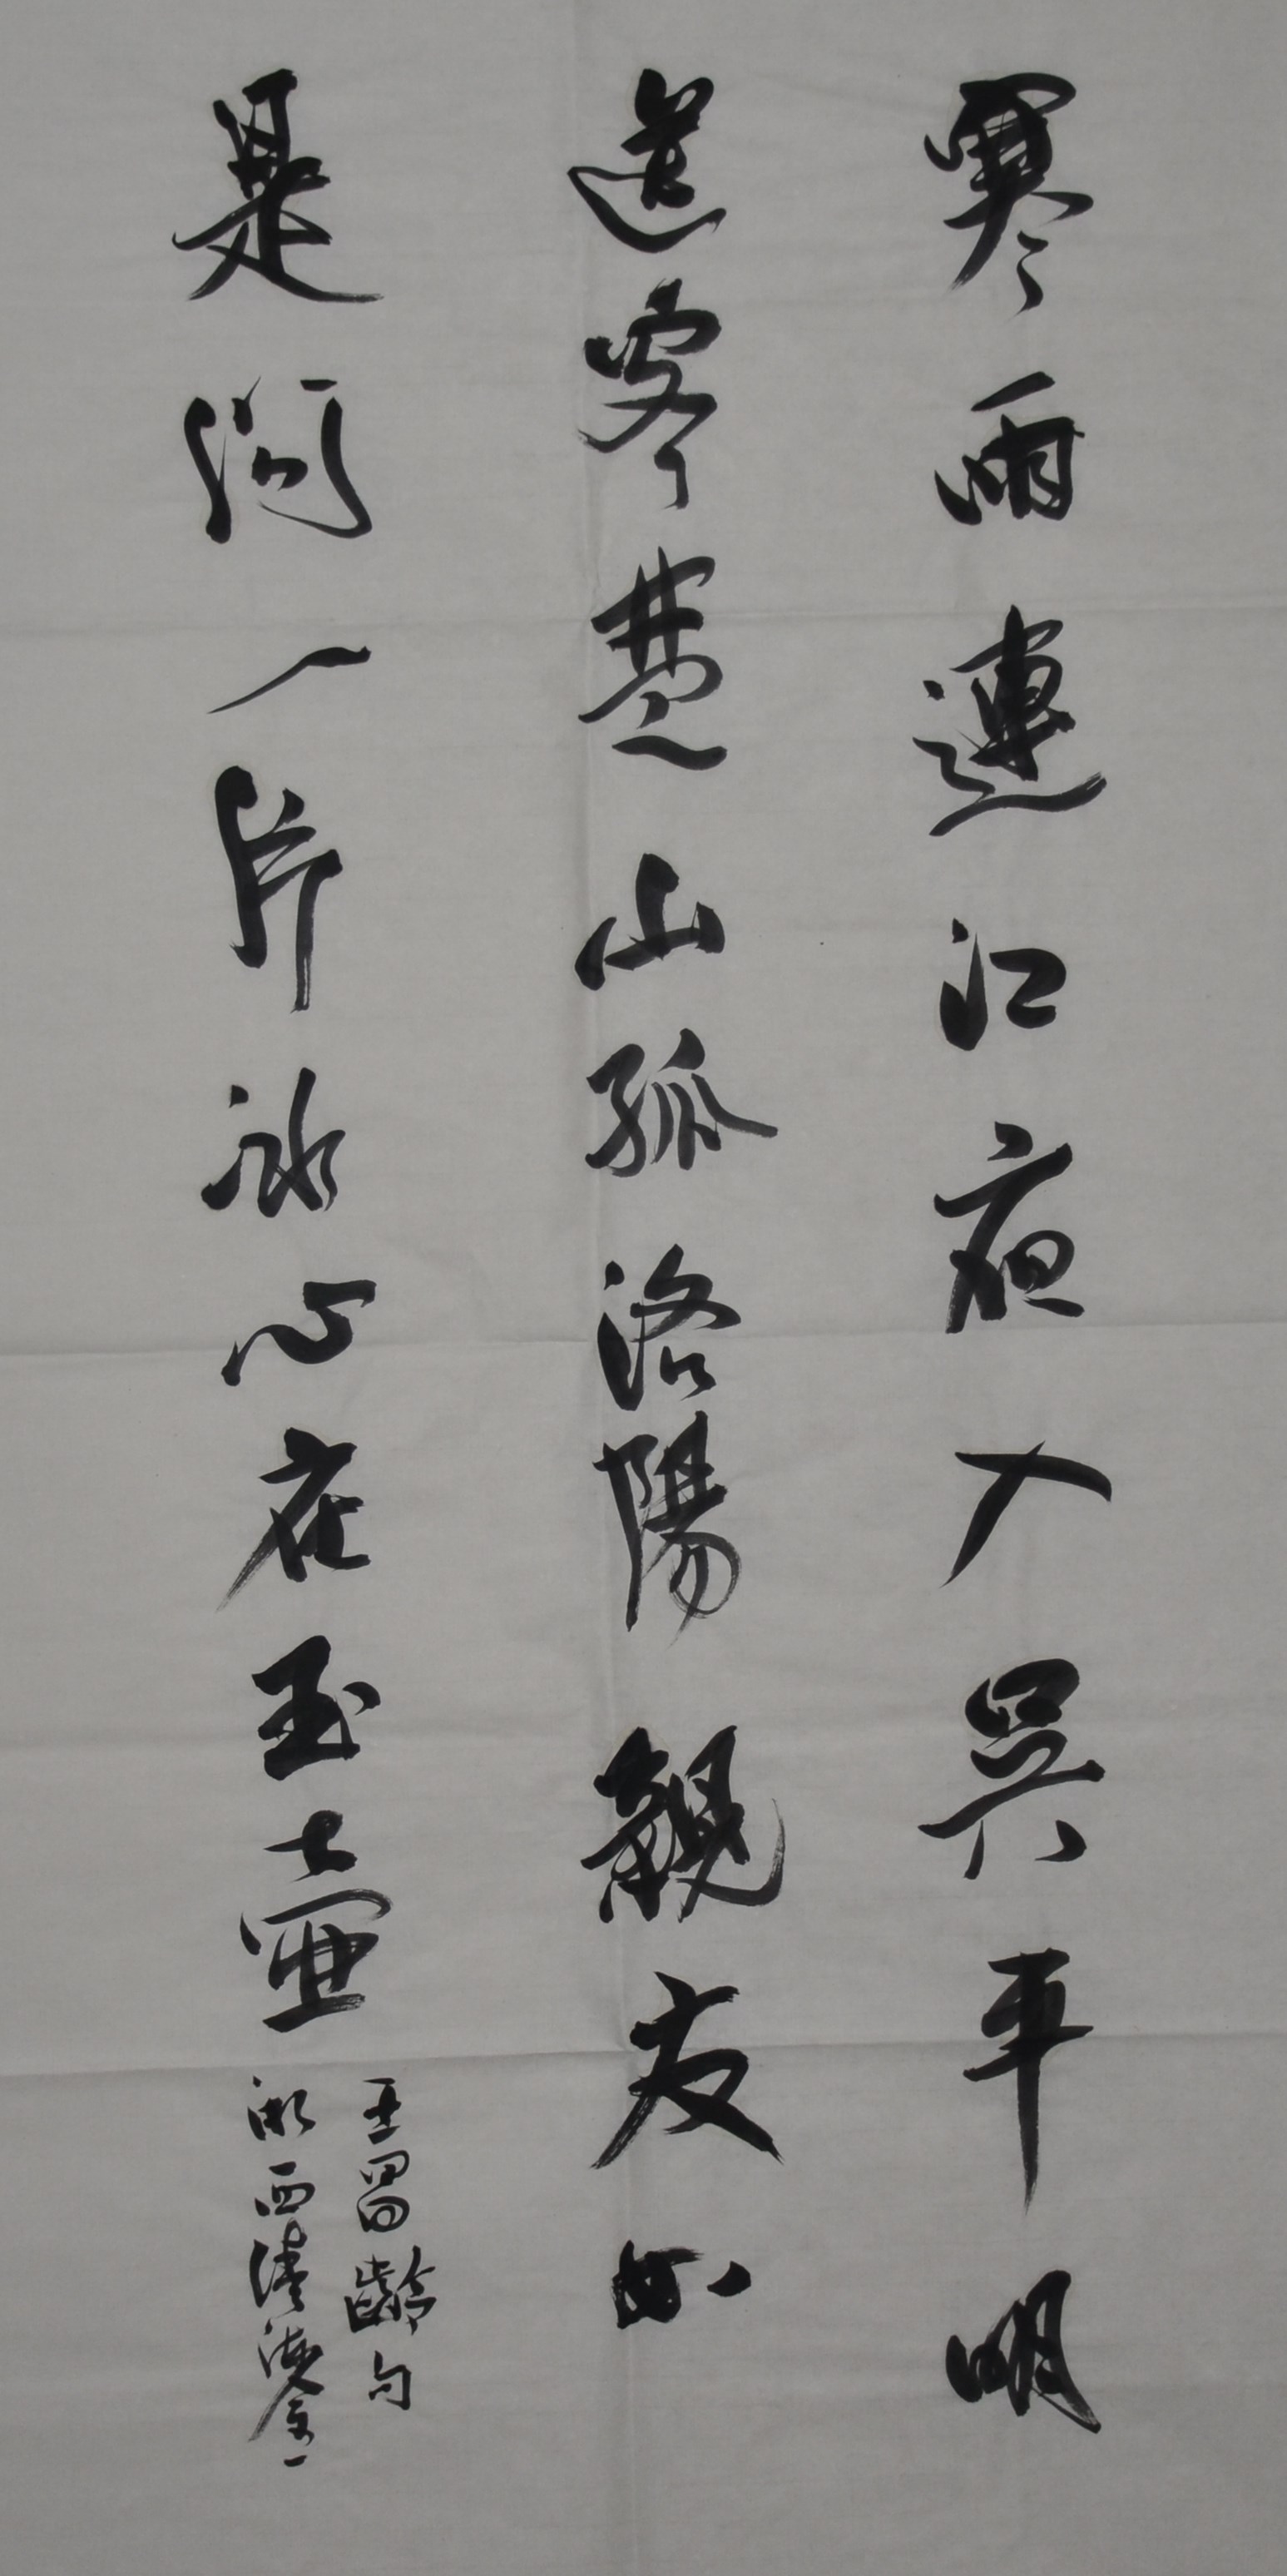 寒雨連江夜入吳平明
送客楚山孤洛陽親友如
是問一片冰心在玉壺
王昌齡句
西